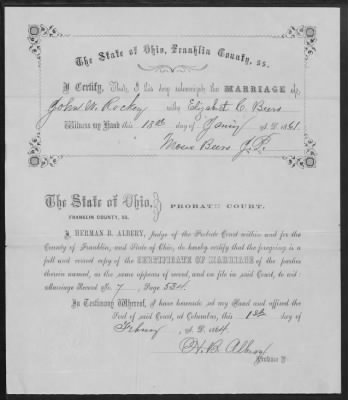 The State of Ohio, Franklin County, ss.
I Certify, That I this day solemnized the MARRIAGE of
John W. Rockey with Elizabeth C. Beers
Witness my Hand this 13th day of A. D. 1861.
Moses Beers J. P.
The State of Ohio,
FRANKLIN COUNTY, SS.
PROBATE COURT.
I, HERMAN B. ALBERY, Judge of the Probate Court within and for the
County of Franklin, and State of Ohio, do hereby certify that the foregoing is a
full and correct copy of the CERTIFICATE OF MARRIAGE of the parties
therein named, as the same appears of record, and on file in said Court, to wit:
Marriage Record No. 7, Page 534.
In Testimony Whereof, I have hereunto set my Hand and affixed the
Seal of said Court, at Columbus, this 1st day of
A. D. 1864
H. B. Albery
Probate J